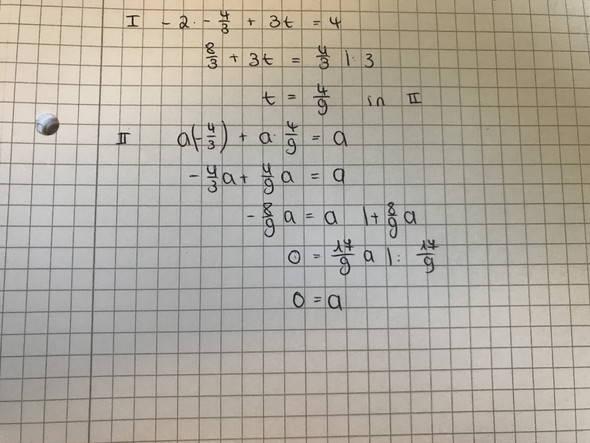 I -2·-4/3 + 3t = 4
8/3 + 3t = 4/3 |:3
t = 4/9 in II
II a(-4/3) + a·4/9 = a
-4/3a + 4/9a = a
-8/9a = a |+8/9a
0 = 17/9 a |: 17/9
0 = a